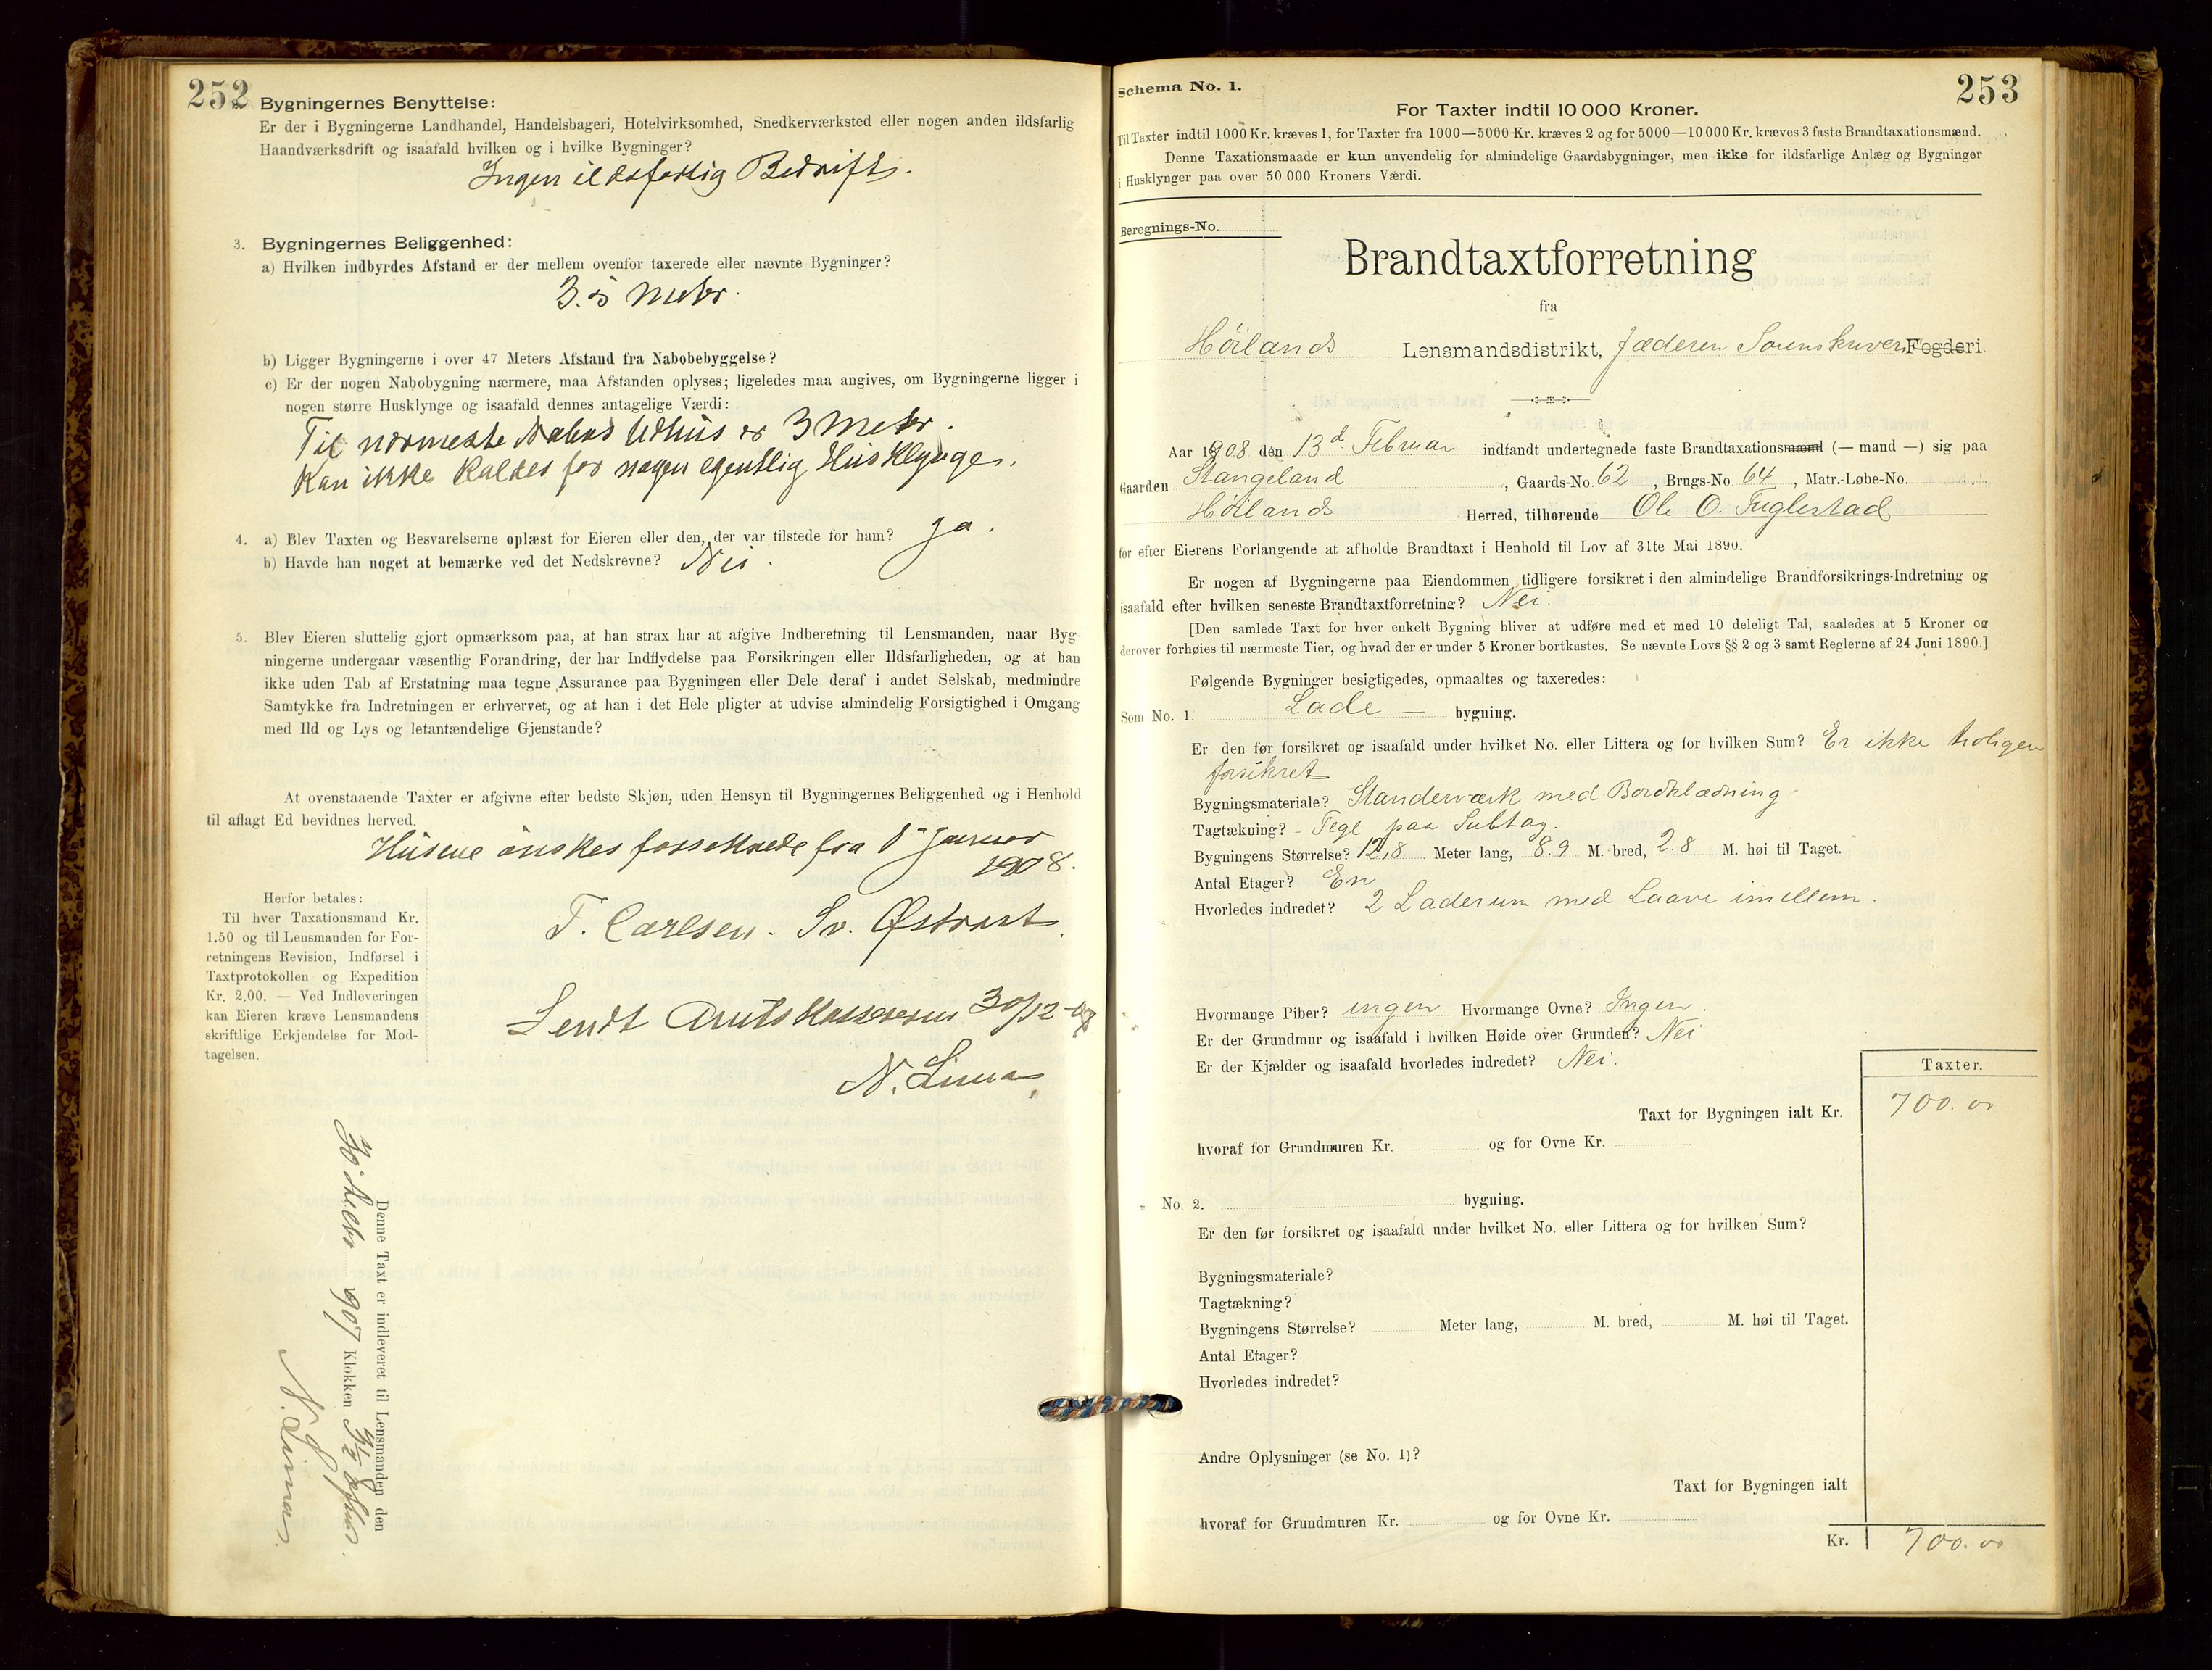 252
Bygningernes Benyttelse:
Er der i Bygningerne Landhandel, Handelsbageri, Hotelvirksomhed, Snedkerværksted eller nogen anden ildsfarlig
Haandværksdrift og isaafald hvilken og i hvilke Bygninger?
Ingen ildsfarlig Bedrift.
3. Bygningernes Beliggenhed:
a) Hvilken indbyrdes Afstand er der mellem ovenfor taxerede eller nævnte Bygninger?
3.5 Meter.
b) Ligger Bygningerne i over 47 Meters Afstand fra Nabobebyggelse?
c) Er der nogen Nabobygning nærmere, maa Afstanden oplyses; ligeledes maa angives, om Bygningerne ligger i
nogen større Husklynge og isaafald dennes antagelige Værdi:
Til nærmeste Nabos Udhus er 3 Meter.
Kan ikke kaldes for nogen egentlig Husklynge.
4. a) Blev Taxten og Besvarelserne oplæst for Eieren eller den, der var tilstede for ham? Ja.
b) Havde han noget at bemærke ved det Nedskrevne? Nei.
5. Blev Eieren sluttelig gjort opmærksom paa, at han strax har at afgive Indberetning til Lensmanden, naar Byg-
ningerne undergaar væsentlig Forandring, der har Indflydelse paa Forsikringen eller Ildsfarligheden, og at han
ikke uden Tab af Erstatning maa tegne Assurance paa Bygningen eller Dele deraf i andet Selskab, medmindre
Samtykke fra Indretningen er erhvervet, og at han i det Hele pligter at udvise almindelig Forsigtighed i Omgang
med Ild og Lys og letantændelige Gjenstande?
At ovenstaaende Taxter er afgivne efter bedste Skjøn, uden Hensyn til Bygningernes Beliggenhed og i Henhold
til aflagt Ed bevidnes herved.
Husene ønskes forsekrede fra 1 Januar
1908.
Herfor betales:
Til hver Taxationsmand Kr.
1.50 og til Lensmanden for For-
retningens Revision, Indførsel i
Taxtprotokollen og Expedition
Kr. 2.00. — Ved Indleveringen
kan Eieren kræve Lensmandens
skriftlige Erkjendelse for Mod-
tagelsen.
T. Carlsen. Sv. Østraat.
Sendt Amtskassereren 30/12-07
N. Lima
Denne Taxt er indleveret til Lensmanden den
30 Decbr 907 Klokken 3½
N. Lima
253
Schema No. 1.
For Taxter indtil 10 000 Kroner.
Til Taxter indtil 1000 Kr. kræves 1, for Taxter fra 1000—5000 Kr. kræves 2 og for 5000—10 000 Kr. kræves 3 faste Brandtaxationsmænd.
Denne Taxationsmaade er kun anvendelig for almindelige Gaardsbygninger, men ikke for ildsfarlige Anlæg og Bygninger
i Husklynger paa over 50 000 Kroners Værdi.
Beregnings-No.
Brandtaxtforretning
fra
Høilands Lensmandsdistrikt, Jæderen Sorenskriveri Fogderi.
Aar 1908 den 13d Februar indfandt undertegnede faste Brandtaxationsmænd (— mand —) sig paa
Gaarden Stangeland, Gaards-No. 62, Brugs-No. 64, Matr.-Løbe-No.
Høilands Herred, tilhørende Ole O. Fuglestad
for efter Eierens Forlangende at afholde Brandtaxt i Henhold til Lov af 31te Mai 1890.
Er nogen af Bygningerne paa Eiendommen tidligere forsikret i den almindelige Brandforsikrings-Indretning og
isaafald efter hvilken seneste Brandtaxtforretning? Nei.
[Den samlede Taxt for hver enkelt Bygning bliver at udføre med et med 10 deleligt Tal, saaledes at 5 Kroner og
derover forhøies til nærmeste Tier, og hvad der er under 5 Kroner bortkastes. Se nævnte Lovs §§ 2 og 3 samt Reglerne af 24 Juni 1890.]
Følgende Bygninger besigtigedes, opmaaltes og taxeredes:
Som No. 1. Lade — bygning.
Er den før forsikret og isaafald under hvilket No. eller Littera og for hvilken Sum? Er ikke
forsikret
Bygningsmateriale? Standerværk med Bordklædning
Tagtækning? - Tegl paa Subtag.
Bygningens Størrelse? 12,8 Meter lang, 8.9 M. bred, 2.8 M. høi til Taget.
Antal Etager? En
Hvorledes indredet? 2 Laderum med Laave imellem.
Hvormange Piber? ingen Hvormange Ovne? Ingen.
Er der Grundmur og isaafald i hvilken Høide over Grunden? Nei
Er der Kjælder og isaafald hvorledes indredet? Nei.
Taxter.
Taxt for Bygningen ialt Kr. 700.00
hvoraf for Grundmuren Kr. og for Ovne Kr.
No. 2. bygning.
Er den før forsikret og isaafald under hvilket No. eller Littera og for hvilken Sum?
Bygningsmateriale?
Tagtækning?
Bygningens Størrelse? Meter lang, M. bred, M. høi til Taget.
Antal Etager?
Hvorledes indredet?
Andre Oplysninger (se No. 1)?
Taxt for Bygningen ialt
hvoraf for Grundmuren Kr. og for Ovne Kr.
Kr. 700.00